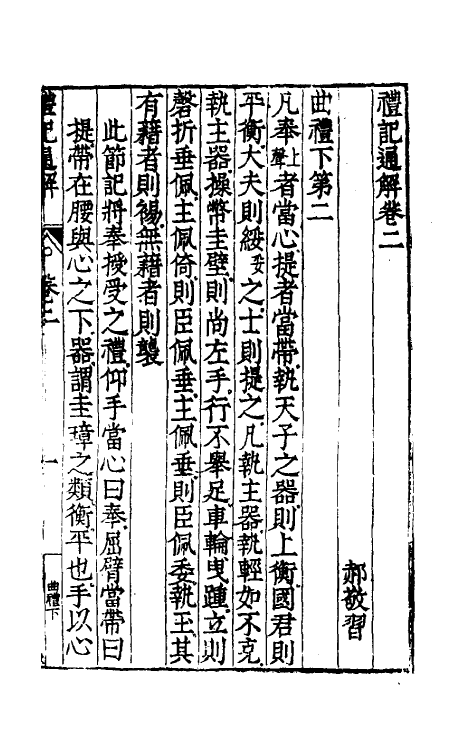 禮記通解卷二
郝敬習
曲禮下第二
凡奉上聲者當心提者當帶執天子之器則上衡國君則
平衡大夫則綏妥之士則提之凡執主器執輕如不克
執主器操幣圭璧則尚左手行不舉足車輪曳踵立則
磬折垂佩主佩倚則臣佩垂主佩垂則臣佩委執玉其
有藉者則裼無藉者則襲
此節記將奉授受之禮仰手當心曰奉屈臂當帶曰
提帶在腰與心之下器謂圭璋之類衡平也手以心
禮記通解
卷二
一
曲禮下